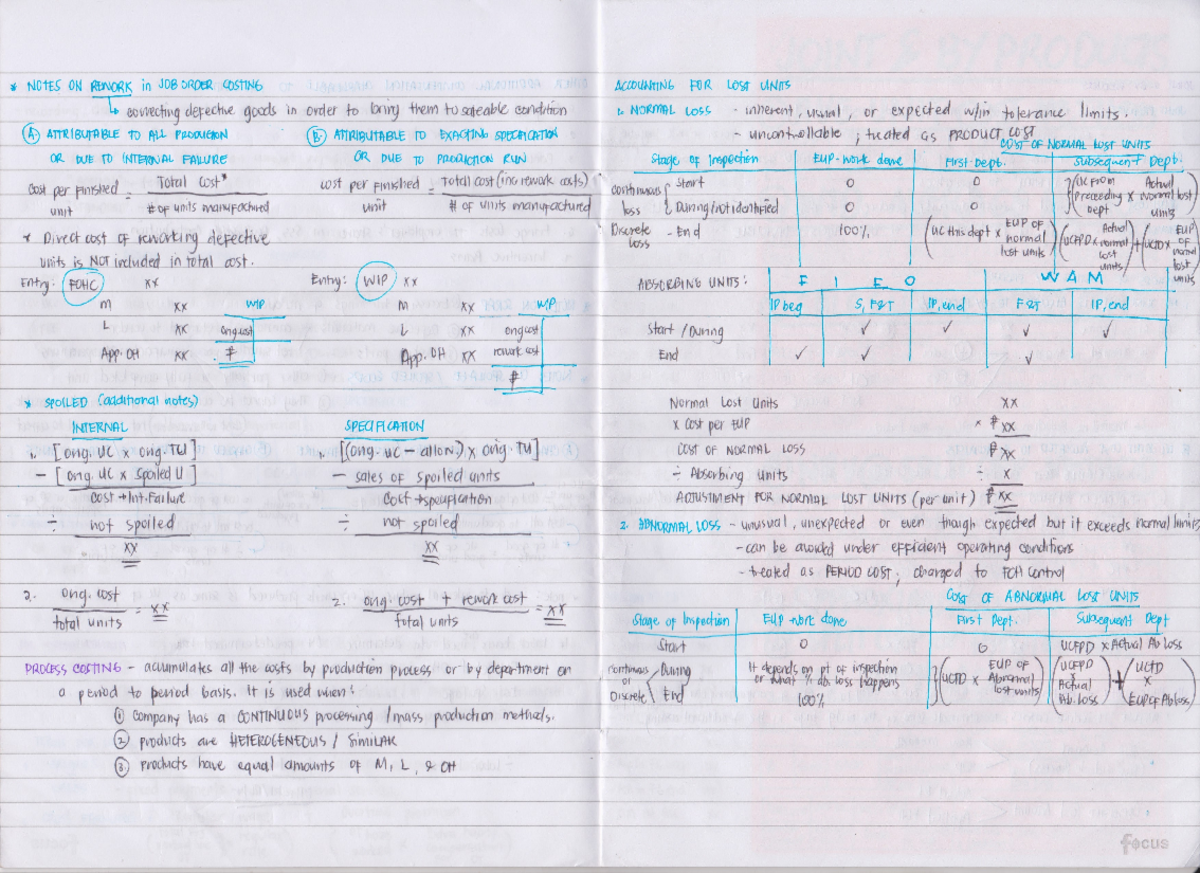 * NOTES ON REWORK in JOB ORDER COSTING
↳ correcting defective goods in order to bring them to saleable condition
Ⓐ ATTRIBUTABLE TO ALL PRODUCTION
OR DUE TO INTERNAL FAILURE
Cost per finished unit = Total Cost* / # of units manufactured
* Direct cost of reworking defective
units is NOT included in total cost.
Entry: FOHC xx
M xx WIP
L xx orig cost
App. OH xx ₱
Ⓑ ATTRIBUTABLE TO EXACTING SPECIFICATION
OR DUE TO PRODUCTION RUN
cost per finished unit = Total cost (inc rework costs) / # of units manufactured
Entry: WIP xx
M xx WIP
L xx orig cost
App. OH xx rework cost
₱
* SPOILED (additional notes)
INTERNAL
1. [orig. UC x orig. TU]
- [orig. UC x spoiled U]
Cost → Int. Failure
÷ not spoiled
xx
2. orig. cost / total units = xx
SPECIFICATION
1. [(orig. UC - allow.) x orig. TU]
- sales of spoiled units
Cost → specification
÷ not spoiled
xx
2. orig. cost + rework cost / total units = xx
PROCESS COSTING - accumulates all the costs by production process or by department on
a period to period basis. It is used when:
① Company has a CONTINUOUS processing / mass production methods.
② products are HETEROGENEOUS / SIMILAR
③ Products have equal amounts of M, L, & OH
ACCOUNTING FOR LOST UNITS
1. NORMAL LOSS - inherent, usual, or expected w/in tolerance limits.
- uncontrollable ; treated as PRODUCT COST
COST OF NORMAL LOST UNITS
Stage of Inspection EUP-work done First Dept. Subsequent Dept.
Continuous loss { Start 0 0
During/not identified 0 0
} (UC from preceeding Dept x Actual normal lost units)
Discrete loss - End 100% (UC this dept x EUP of normal lost units) (UCFPD x Actual normal lost units) + (UCTD x EUP of normal lost units)
ABSORBING UNITS: F I F O W A M
IP beg S, F&T IP, end F&T IP, end
Start / During ✓ ✓ ✓ ✓
End ✓ ✓ ✓
Normal Lost Units xx
x Cost per EUP x ₱ xx
COST OF NORMAL LOSS ₱ xx
÷ Absorbing Units ÷ x
ADJUSTMENT FOR NORMAL LOST UNITS (per unit) ₱ xx
2. ABNORMAL LOSS - unusual, unexpected or even though expected but it exceeds normal limits
- can be avoided under efficient operating conditions
- treated as PERIOD COST; charged to FOH Control
COST OF ABNORMAL LOST UNITS
Stage of Inspection EUP-work done First Dept. Subsequent Dept
Start 0 0 UCFPD x Actual Ab Loss
Continuous or Discrete
During It depends on pt of inspection
or what % ab. loss happens
End 100%
} (UCTD x EUP of Abnormal lost units) (UCFPD x Actual Ab. Loss) + (UCTD x EUP of Ab Loss)
focus